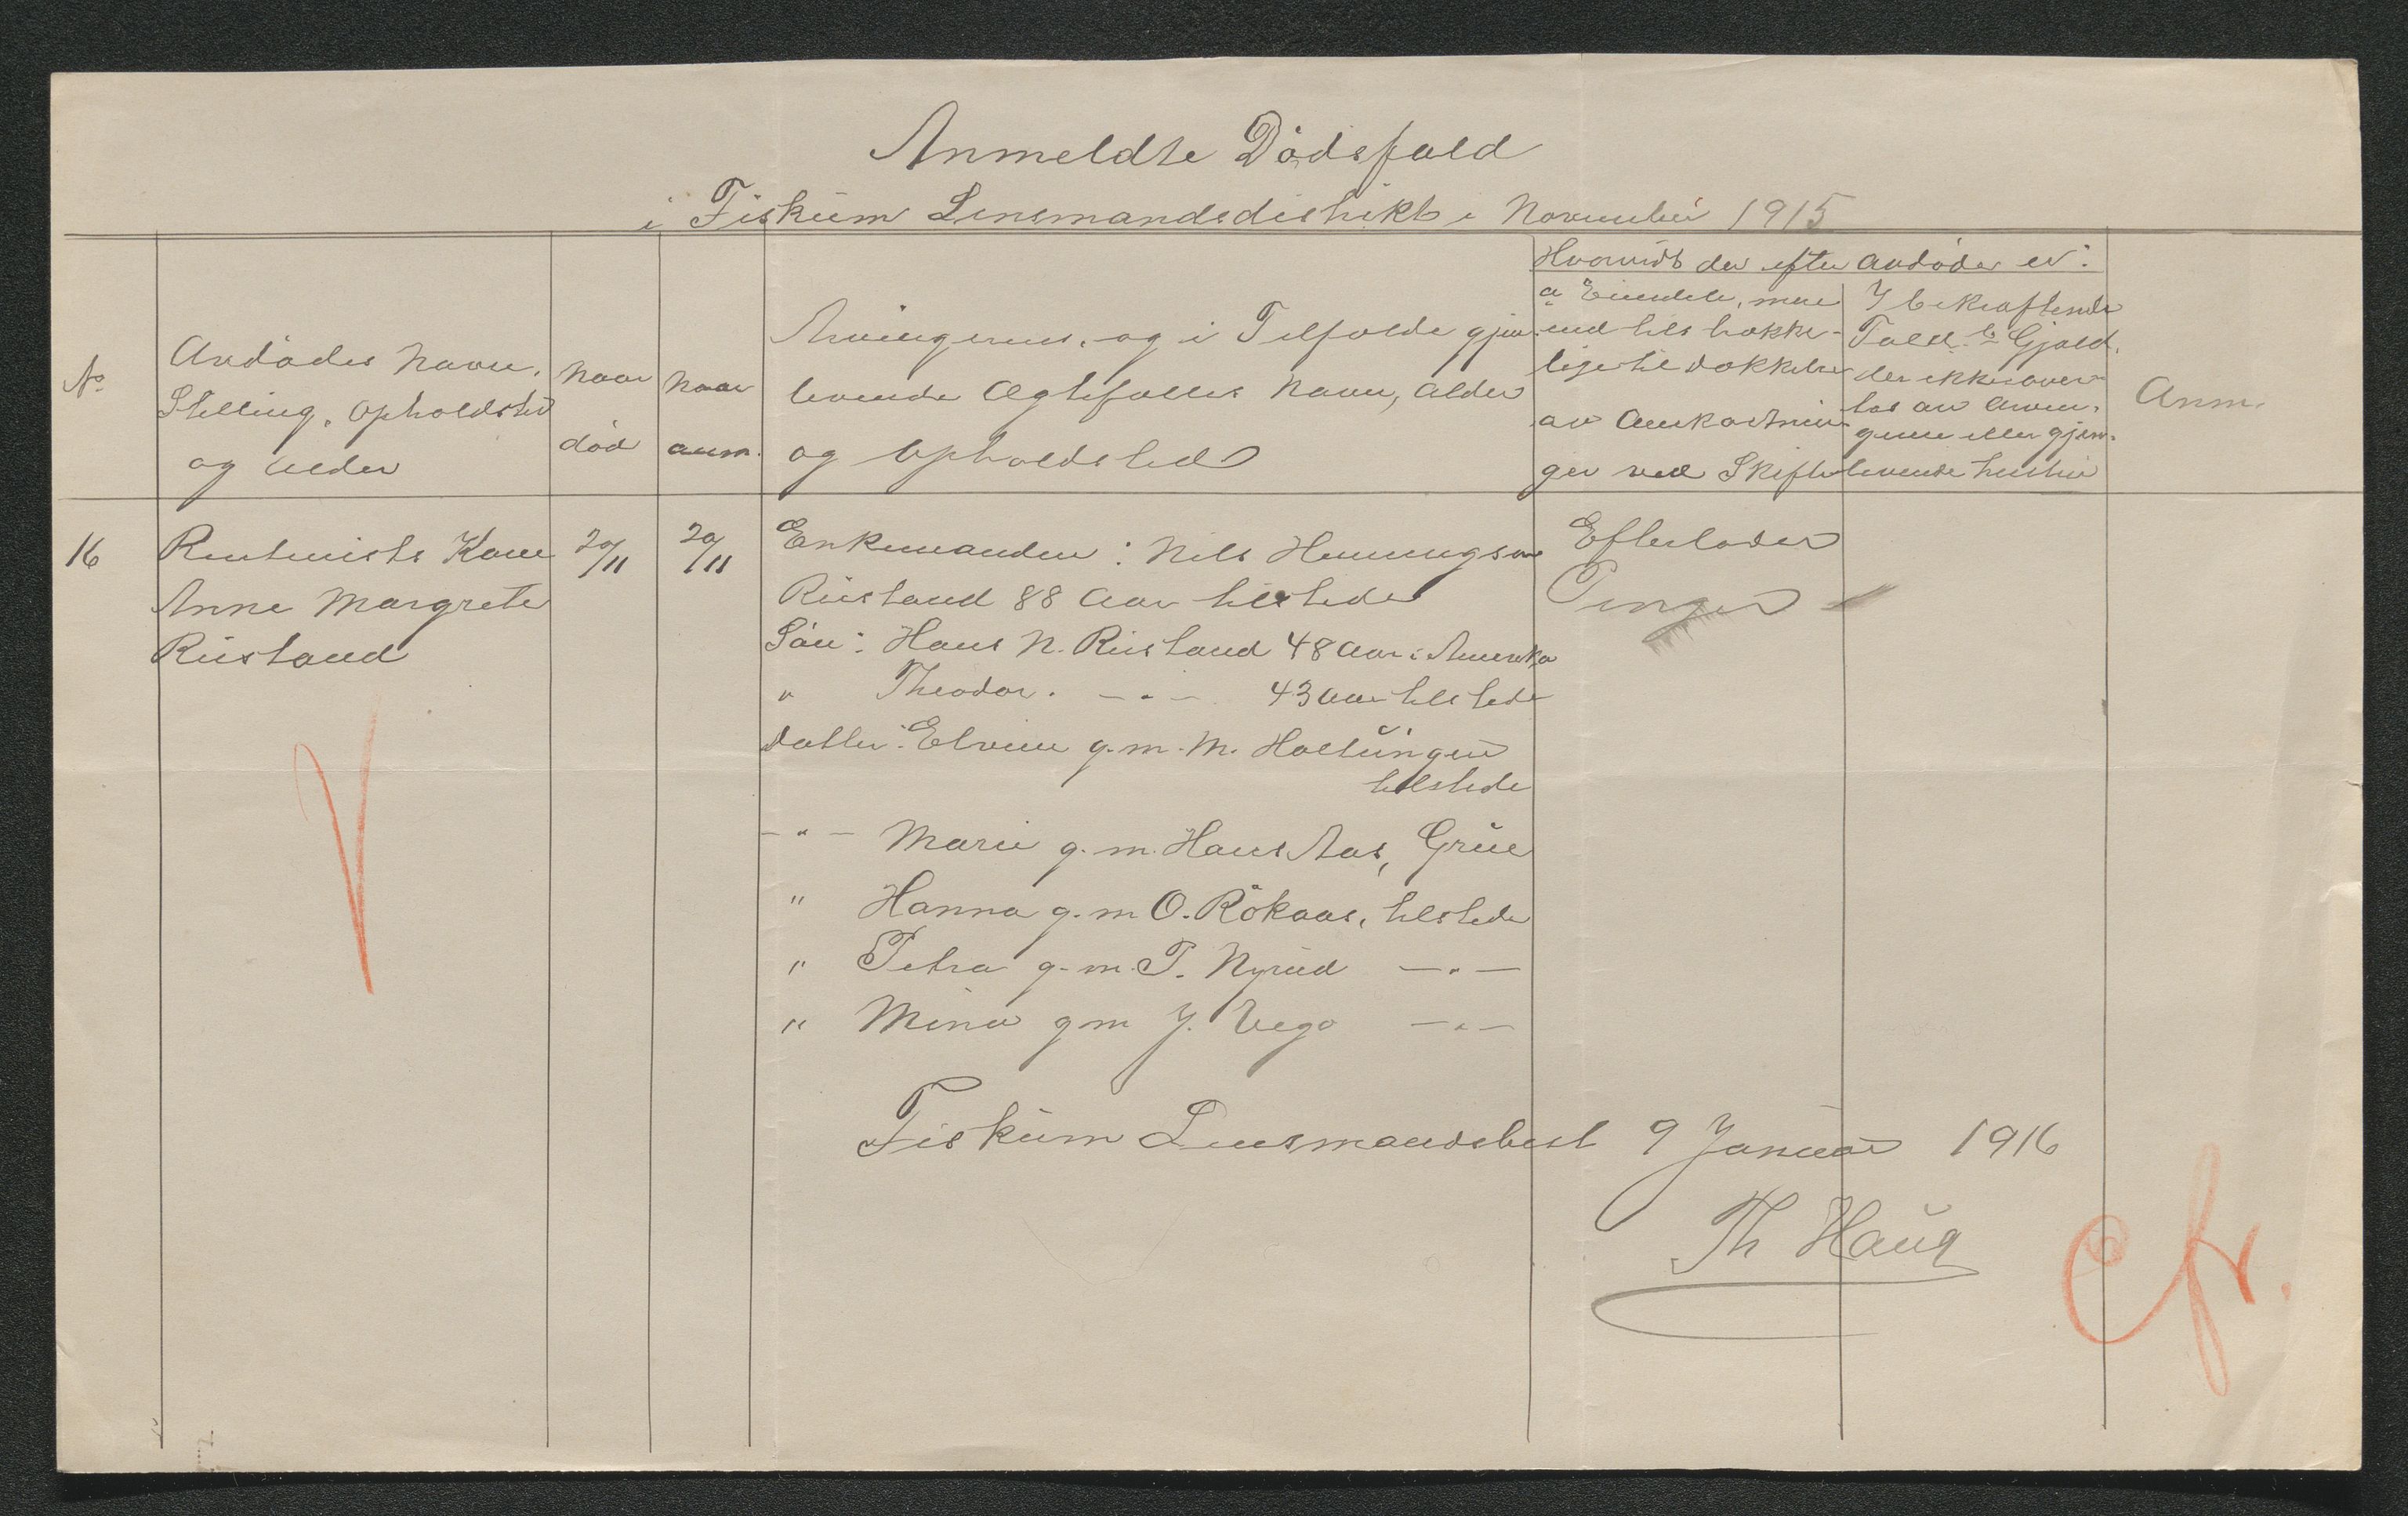 Anmeldte Dödsfald
i Fiskum Lensmandsdistrikt i November 1915
No
Avdødes Navn,
Stilling, Opholdsted
og Alder
Naar
død
Naar
anm.
Arvingernes, og i Tilfælde gjen-
levende Ægtefælles Navn, Alder
og Opholdsted
Hvorvidt der efter Avdøde er:
a Eiendele, mere
end tilstrække-
lige til Dækkelse
av Omkostnin-
ger ved Skifte
I bekræftende
Fald b Gjæld,
der ikke over-
tas av Arvin-
gerne eller gjen-
levende hustru
Anm.
16
Rentenists Kone
Anne Margrete
Rustand
20/11
20/11
Enkemanden: Nils Henningsen
Rustand 88 Aar tilstede
Søn: Hans N. Rustand 48 Aar i Amerika
" Theodor. - " - 43 Aar tilstede
Datter: Elvine g. m. M. Holtungen
tilstede
- " - Marie g. m. Hans Aas, Grue
" Hanna g. m O. Rökaas, tilstede
" Petra g. m. P. Nyrud - " -
" Mina g m J. Vego - " -
Efterlader
Penger
Fiskum Lensmandsbest 9 Januar 1916
Th Haug
Cfr.